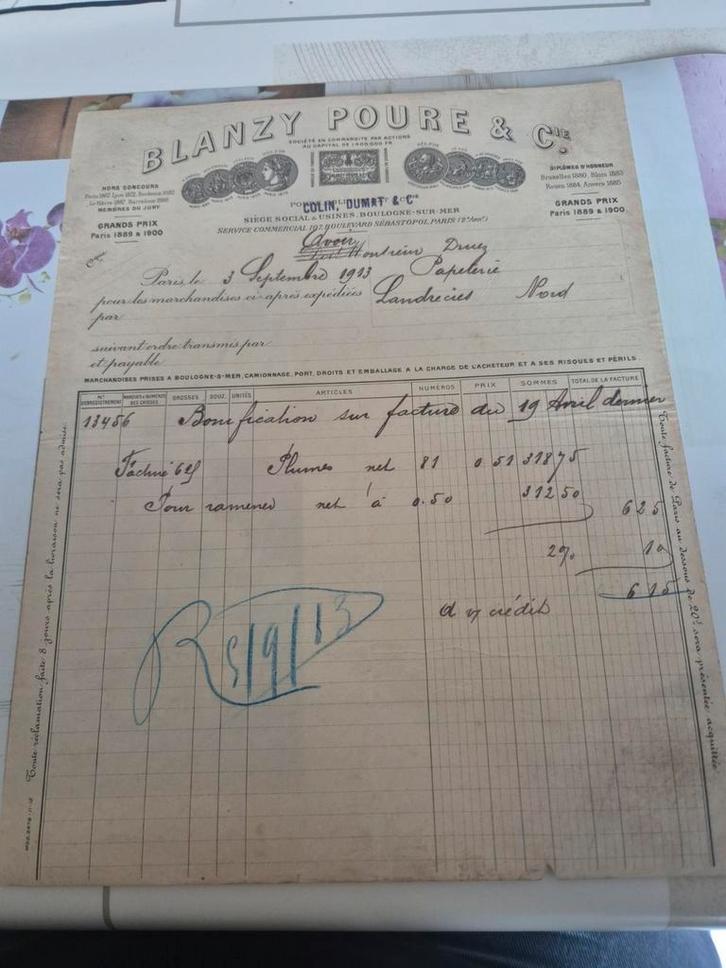 BLANZY POURE & CIE.
SOCIÉTÉ EN COMMANDITE PAR ACTIONS
AU CAPITAL DE 1.400.000 FR
HORS CONCOURS
Paris 1867, Lyon 1872, Bordeaux 1882
Le Hâvre 1887, Barcelone 1888
MEMBRES DU JURY
GRANDS PRIX
Paris 1889 & 1900
DIPLÔMES D'HONNEUR
Bruxelles 1880, Blois 1883
Rouen 1884, Anvers 1885
GRANDS PRIX
Paris 1889 & 1900
COLIN, DUMAT & Cie
SIÈGE SOCIAL & USINES, BOULOGNE-SUR-MER
SERVICE COMMERCIAL 107, BOULEVARD SÉBASTOPOL, PARIS (2e Arrt)
Avoir
Monsieur Druez
Paris, le 3 Septembre 1913 Papeterie
pour les marchandises ci-après expédiées Landrecies Nord
par
suivant ordre transmis par
et payable
MARCHANDISES PRISES A BOULOGNE-S-MER, CAMIONNAGE, PORT, DROITS ET EMBALLAGE A LA CHARGE DE L'ACHETEUR ET A SES RISQUES ET PÉRILS.
No D'ENREGISTREMENT MARQUES & NUMÉROS DES CAISSES GROSSES DOUZ. UNITÉS ARTICLES NUMÉROS PRIX SOMMES TOTAL DE LA FACTURE
13456 Bonification sur facture du 19 Avril dernier
Facturé 625 Plumes net 81 0 51 318 75
Pour ramener net à 0.50 312 50
6 25
2% 10
6 15
à v/ crédit
R 5/9/13
Toute réclamation faite 8 jours après la livraison ne sera pas admise.
Toute facture de Paris au dessous de 20f sera présentée acquittée